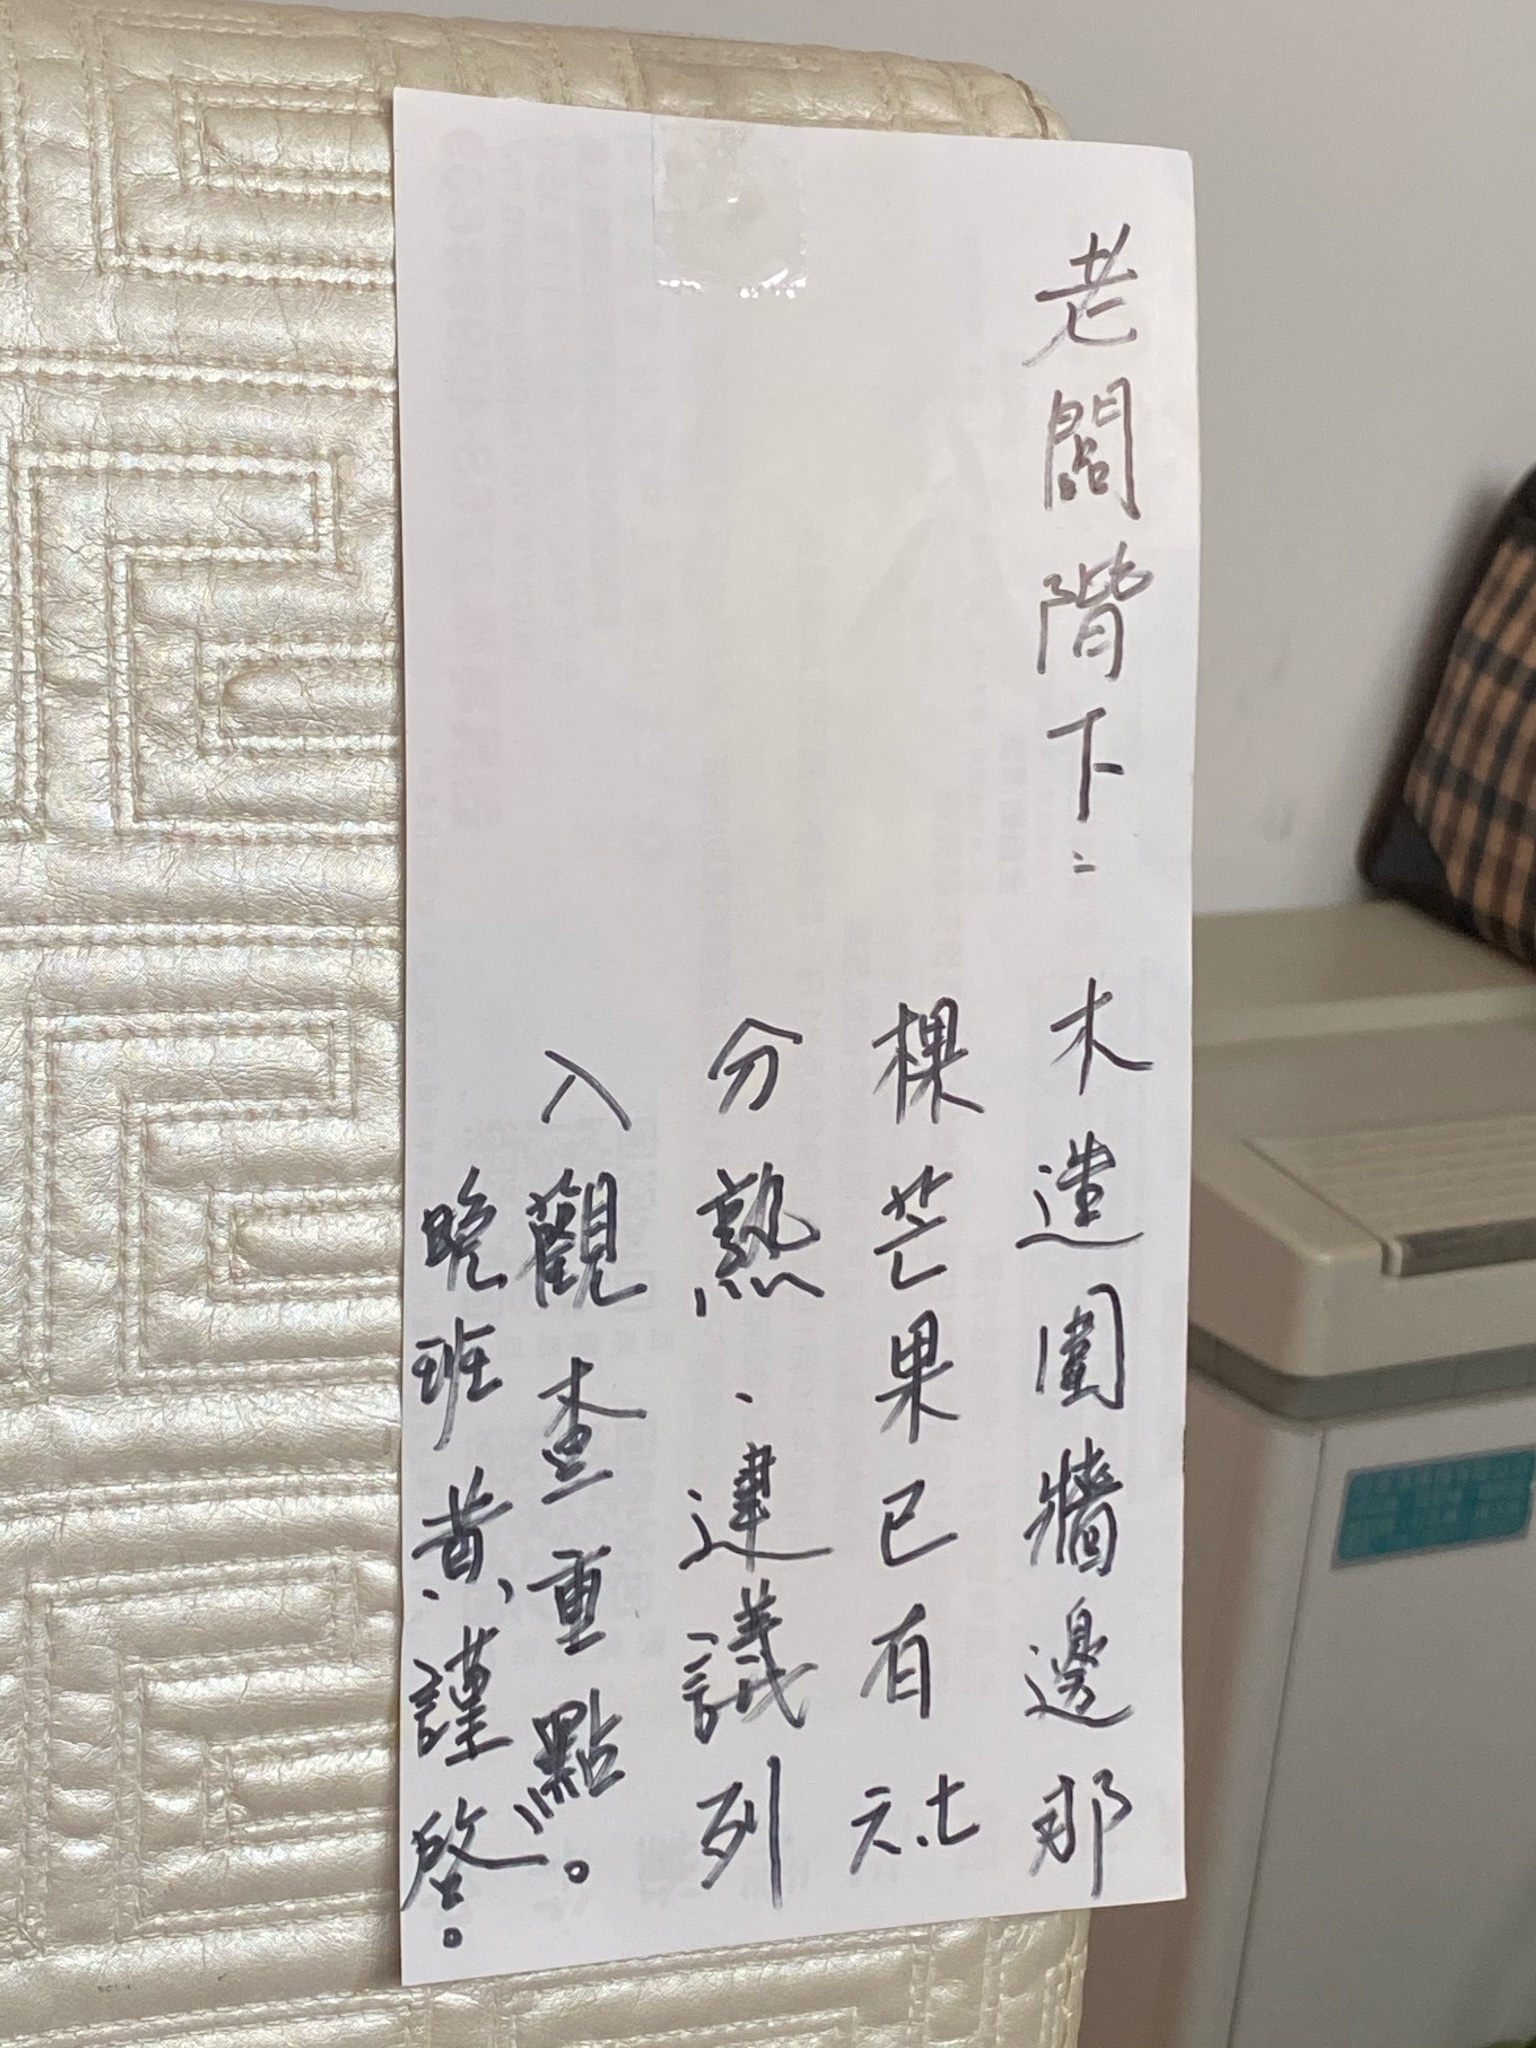 老闆階下：木造圍牆邊那
棵芒果已有六、七
分熟、建議列
入觀查重點。
晚班黃謹啓。